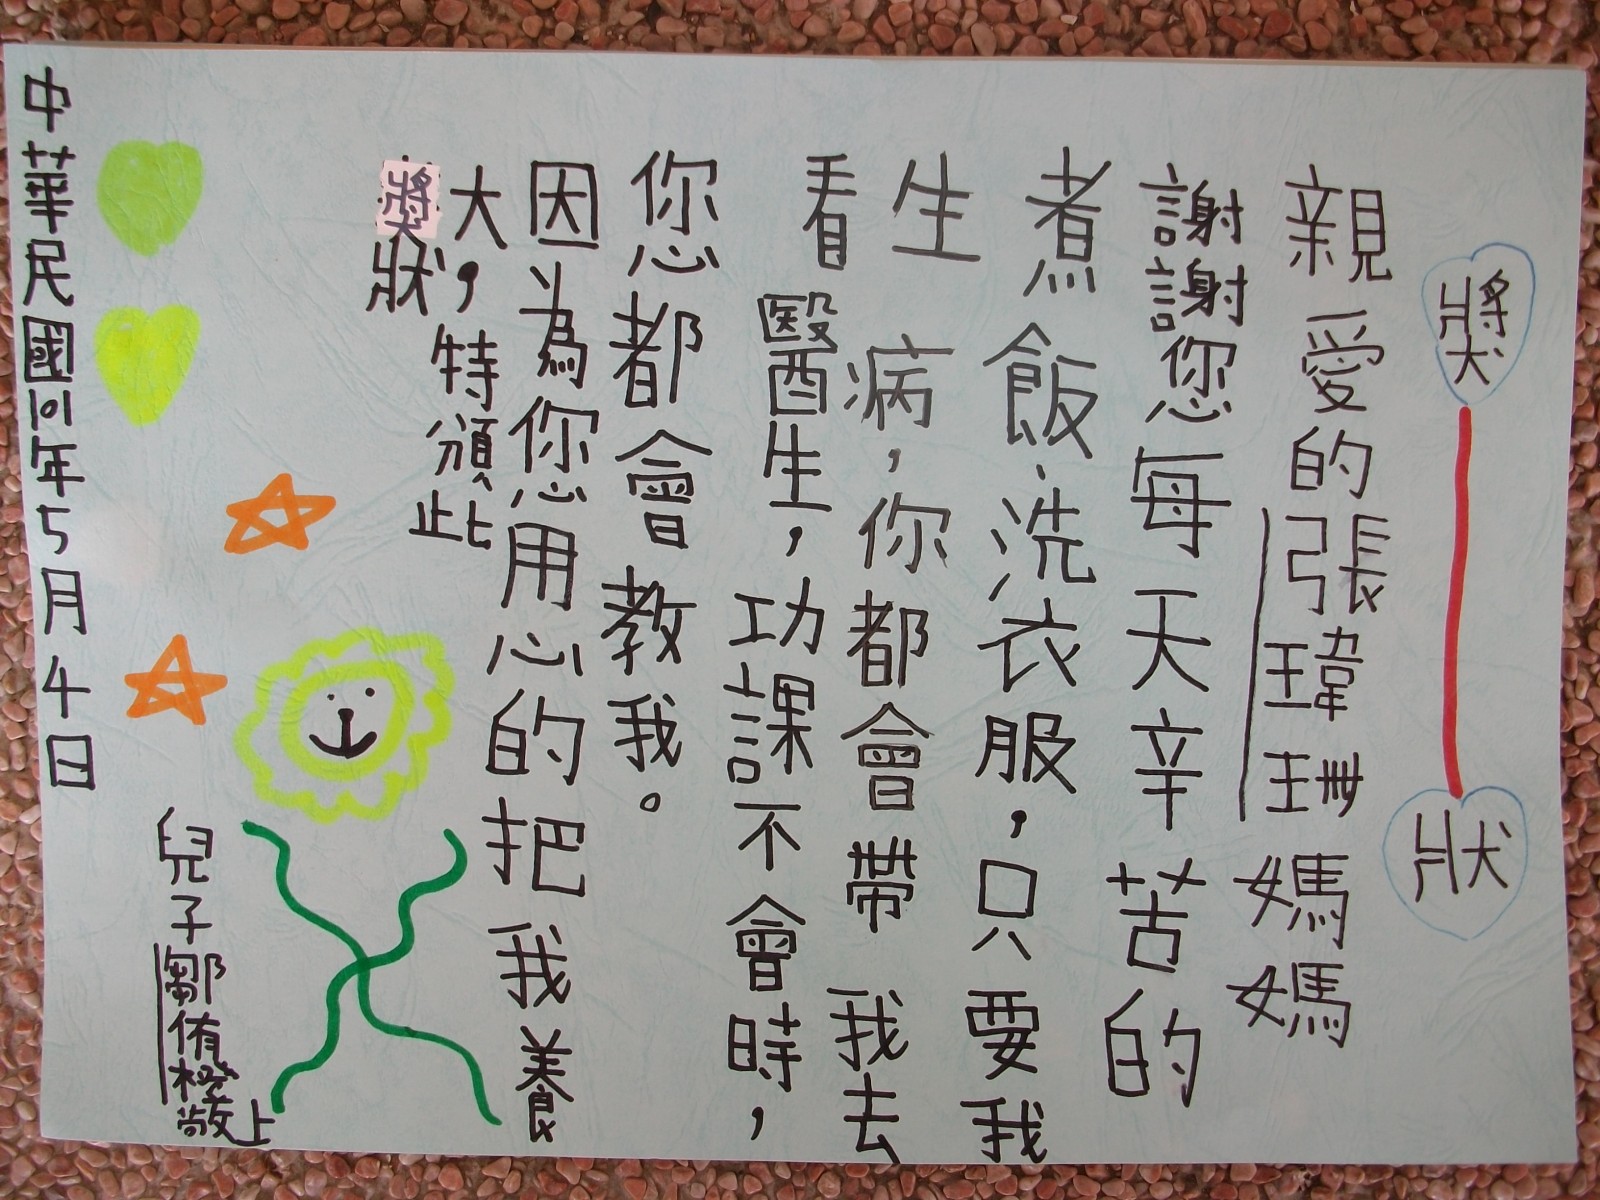 獎狀
親愛的張瑋珊媽媽
謝謝您每天辛苦的
煮飯、洗衣服，只要我
生病，你都會帶我去
看醫生，功課不會時，
您都會教我。
因為您用心的把我養
大，特頒此
獎狀
兒子鄒侑橙敬上
中華民國101年5月4日